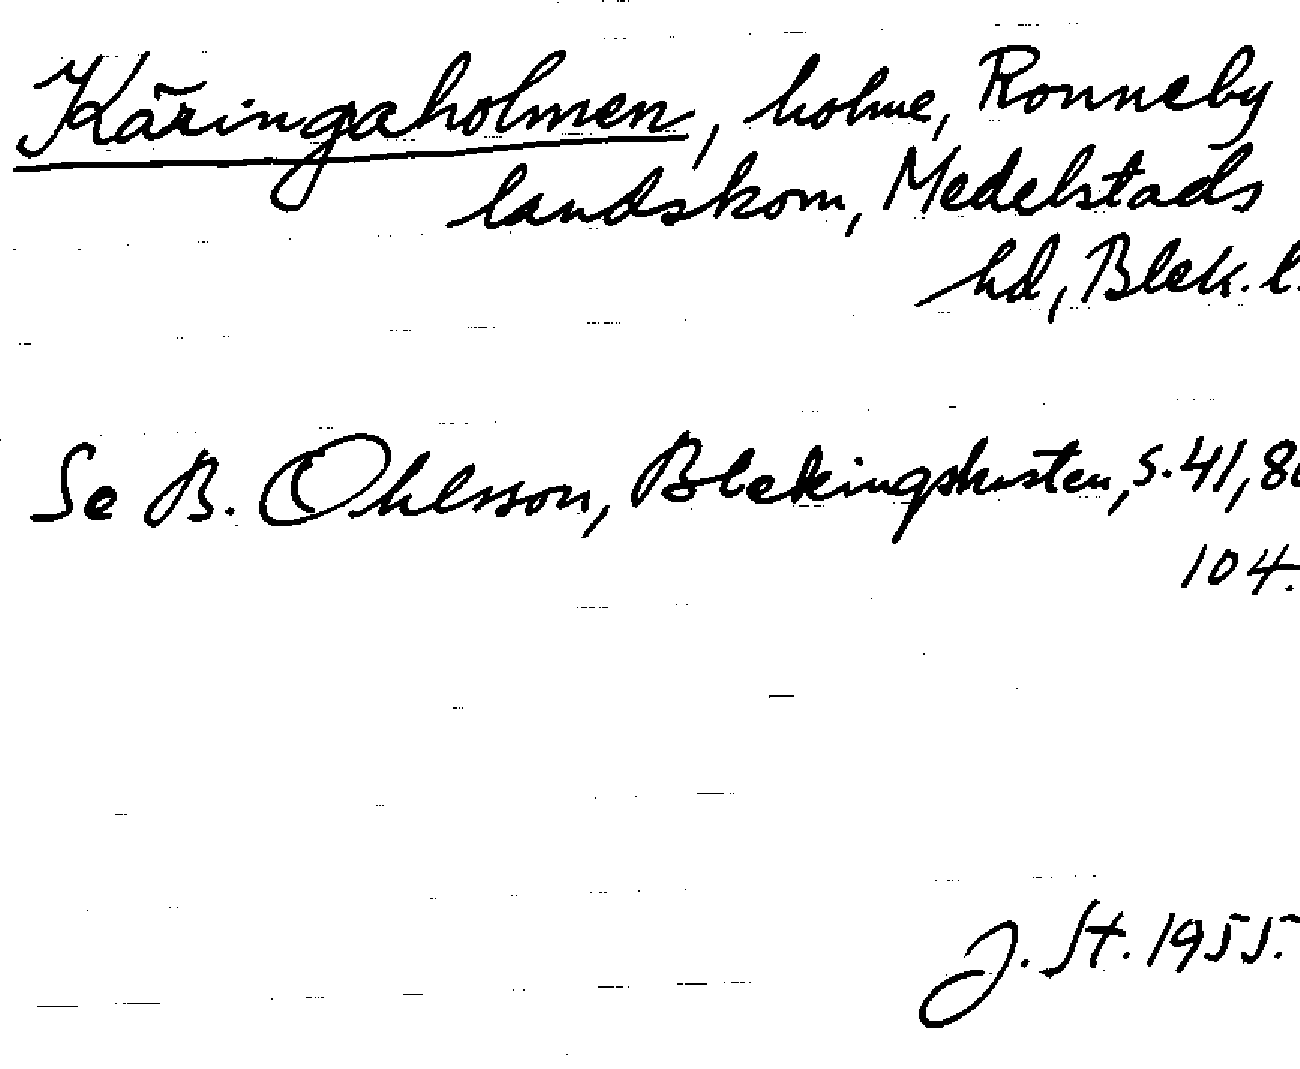 Käringaholmen, holme, Ronneby
landskom, Medelstads
hd, Blek. l.
Se B. Ohlsson, Blekingskusten, s. 41,
104.
J. St. 1955.